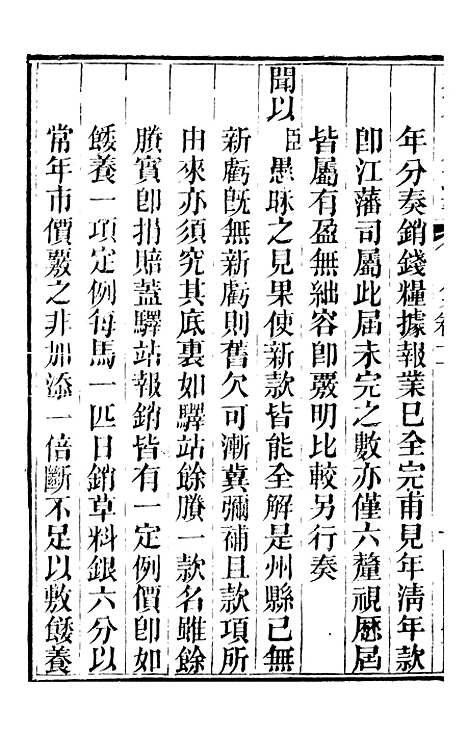 年分奏銷錢糧據報業已全完甫見年清年款
卽江藩司屬此届未完之數亦僅六釐視歷届
皆屬有盈無絀容卽覈明比較另行奏
聞以臣愚昧之見果使新款皆能全解是州縣已無
新虧旣無新虧則舊欠可漸冀彌補且款項所
由來亦須究其底裏如驛站餘賸一款名雖餘
賸實卽捐賠蓋驛站報銷皆有一定例價卽如
餧養一項定例每馬一匹日銷草料銀六分以
常年市價覈之非加添一倍斷不足以敷餧養